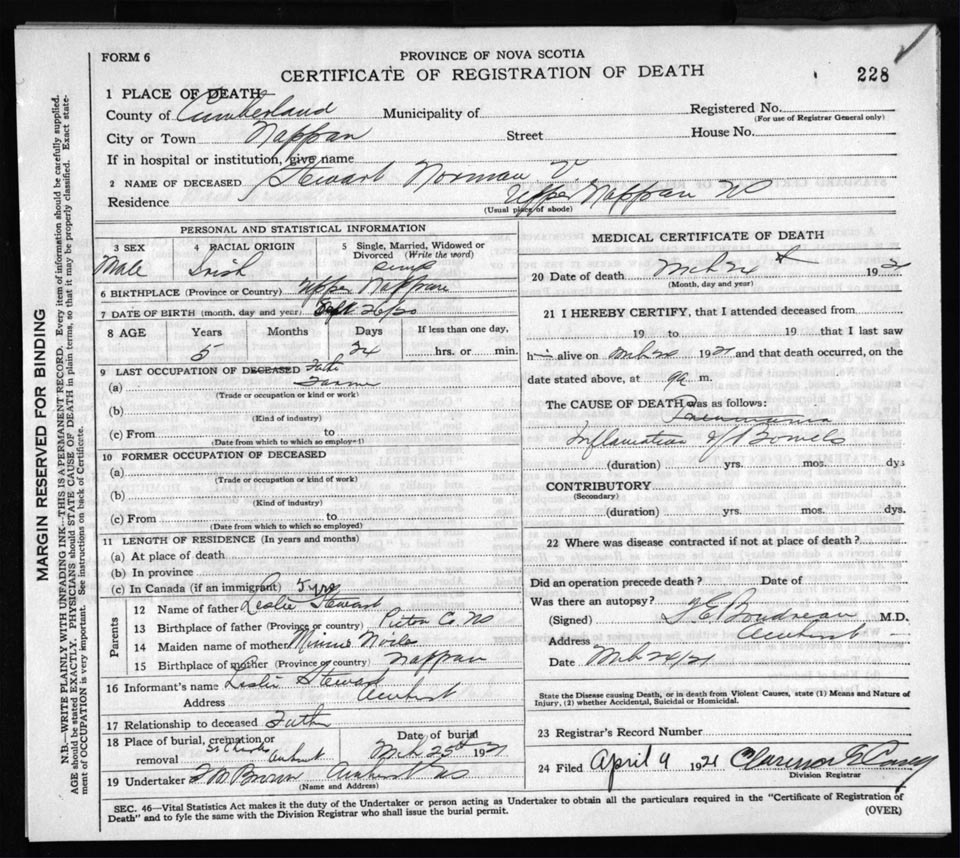 FORM 6
PROVINCE OF NOVA SCOTIA
CERTIFICATE OF REGISTRATION OF DEATH
228
1 PLACE OF DEATH
County of Cumberland Municipality of Registered No.
(For use of Registrar General only)
City or Town Nappan Street House No.
If in hospital or institution, give name
2 NAME OF DECEASED Stewart Norman V
Residence Upper Nappan NS
(Usual place of abode)
PERSONAL AND STATISTICAL INFORMATION
3 SEX 4 RACIAL ORIGIN 5 Single, Married, Widowed or Divorced (Write the word)
Male Irish
6 BIRTHPLACE (Province or Country) Upper Nappan
7 DATE OF BIRTH (month, day and year) Sept 26/20
8 AGE Years Months Days If less than one day,
5 24 hrs. or min.
9 LAST OCCUPATION OF DECEASED
(a) Farmer
(Trade or occupation or kind or work)
(b)
(Kind of industry)
(c) From to
(Date from which to which so employed)
10 FORMER OCCUPATION OF DECEASED
(a)
(Trade or occupation or kind of work)
(b)
(Kind of industry)
(c) From to
(Date from which to which so employed)
11 LENGTH OF RESIDENCE (In years and months)
(a) At place of death
(b) In province
(c) In Canada (if an immigrant)
Parents
12 Name of father Leslie Stewart
13 Birthplace of father (Province or country) Pictou Co NS
14 Maiden name of mother Minnie
15 Birthplace of mother (Province or country) Nappan
16 Informant's name Leslie Stewart
Address Amherst
17 Relationship to deceased Father
18 Place of burial, cremation or removal St Charles Amherst Date of burial Mch 25th 1921
19 Undertaker Brown Amherst NS
(Name and Address)
MEDICAL CERTIFICATE OF DEATH
20 Date of death Mch 24th 192
(Month, day and year)
21 I HEREBY CERTIFY, that I attended deceased from
19 to 19 that I last saw
him alive on 1921 and that death occurred, on the
date stated above, at 9a m.
The CAUSE OF DEATH was as follows:
Pneumonia
Inflamation of Bowels
(duration) yrs. mos. dys
CONTRIBUTORY
(Secondary)
(duration) yrs. mos. dys.
22 Where was disease contracted if not at place of death?
Did an operation precede death? Date of
Was there an autopsy?
(Signed) Boudreau M.D.
Address Amherst
Date Mch 24/21
State the Disease causing Death, or in death from Violent Causes, state (1) Means and Nature of
Injury, (2) whether Accidental, Suicidal or Homicidal.
23 Registrar's Record Number
24 Filed April 9 1921 Clarence
Division Registrar
SEC. 46—Vital Statistics Act makes it the duty of the Undertaker or person acting as Undertaker to obtain all the particulars required in the "Certificate of Registration of
Death" and to fyle the same with the Division Registrar who shall issue the burial permit. (OVER)
MARGIN RESERVED FOR BINDING
N.B.—WRITE PLAINLY WITH UNFADING INK—THIS IS A PERMANENT RECORD. Every item of information should be carefully supplied.
AGE should be stated EXACTLY. PHYSICIANS should STATE CAUSE OF DEATH in plain terms, so that it may be properly classified. Exact state-
ment of OCCUPATION is very important. See instructions on back of Certificate.